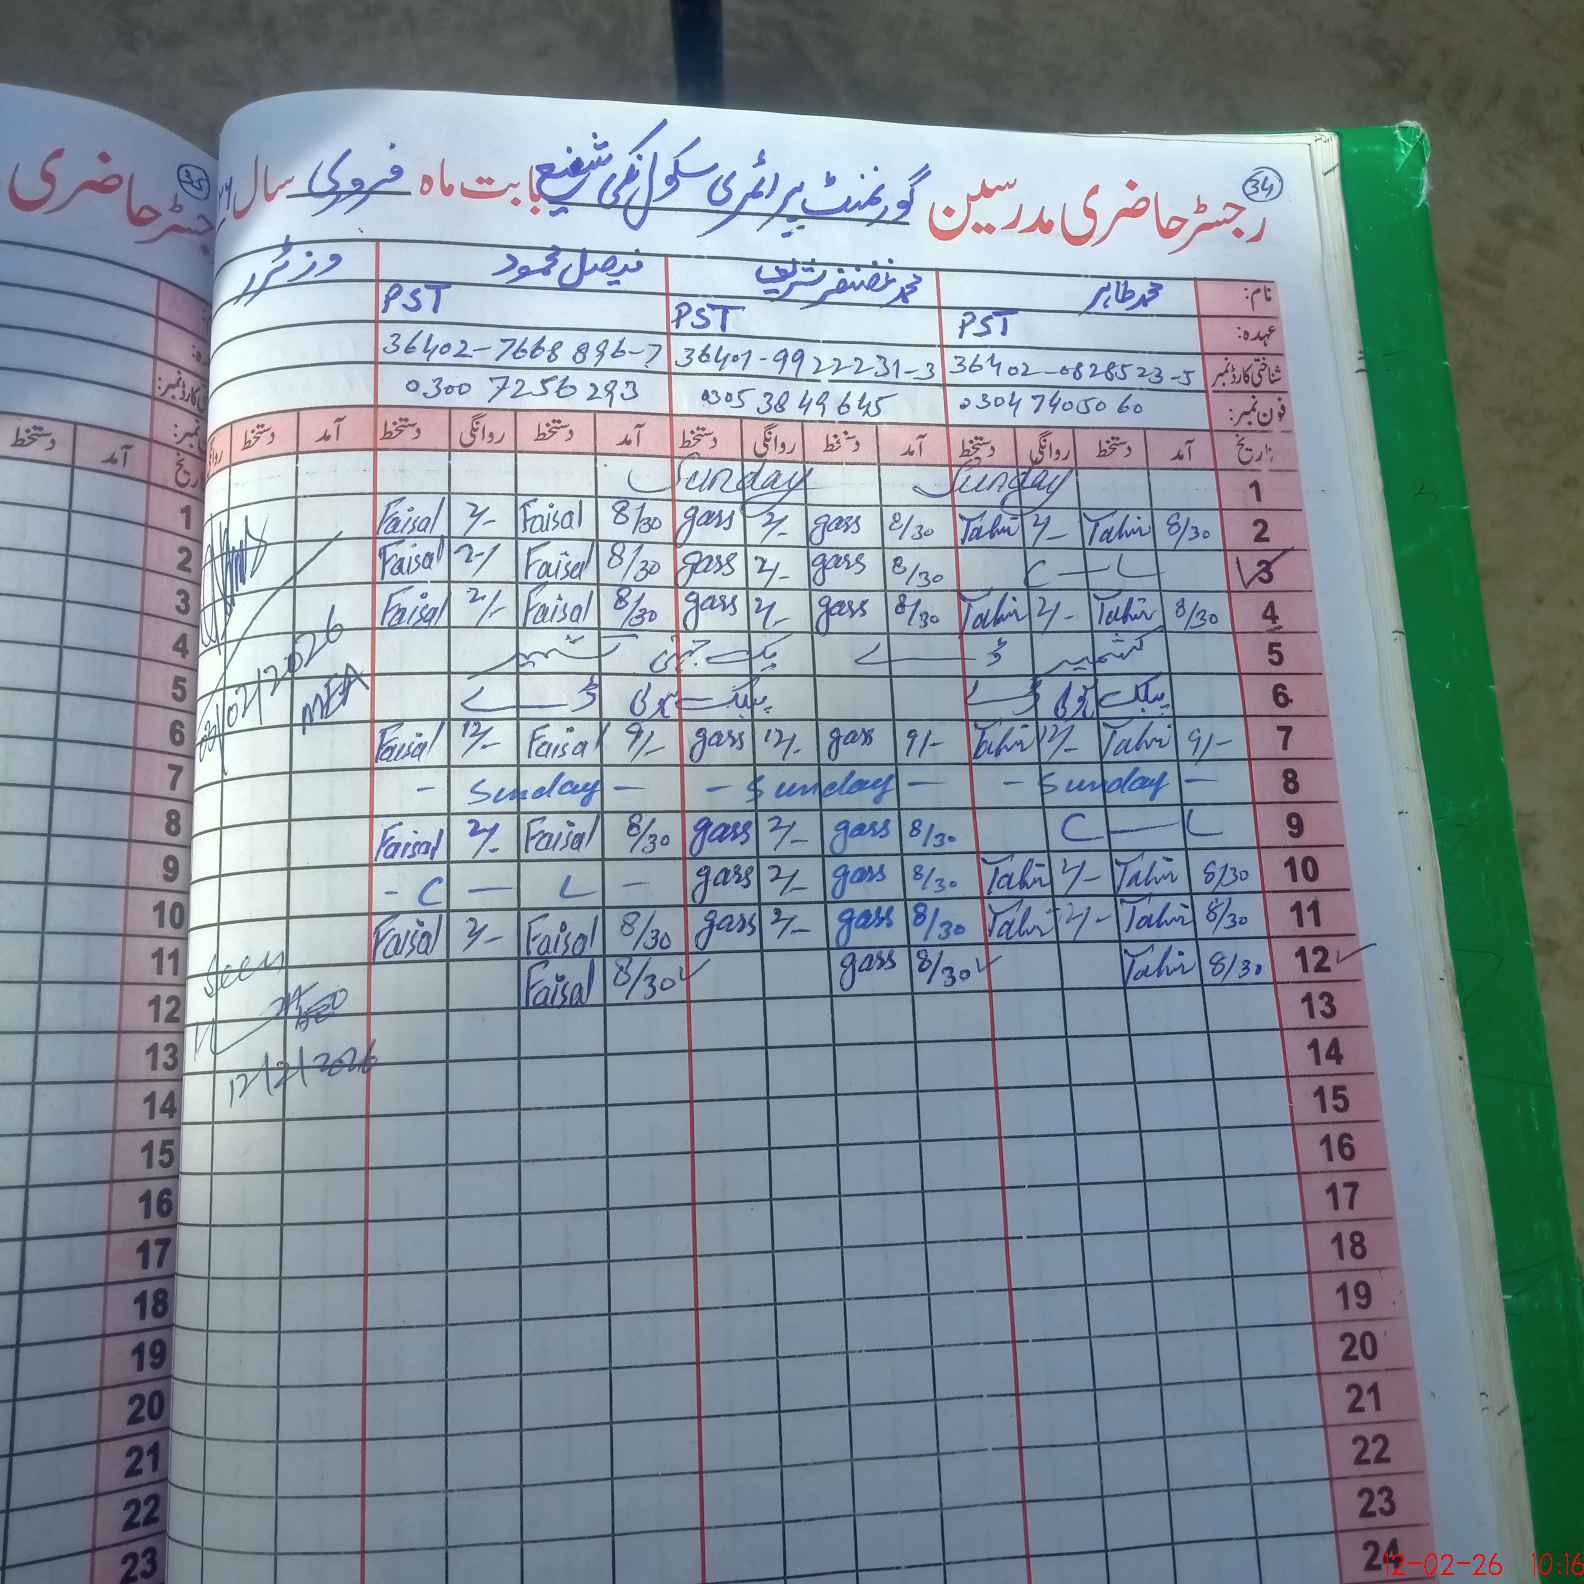 34
رجسٹر حاضری مدرسین گورنمنٹ پرائمری سکول نکی شفیع بابت ماہ فروری سال
نام: محمد طاہر محمد غضنفر شریف فیصل محمود وزیٹرز
عہدہ: PST PST PST
شناختی کارڈ نمبر 36402-0828523-5 36401-9922231-3 36402-7668896-7
فون نمبر: 03047405060 03053849645 03007256293
تاریخ آمد دستخط روانگی دستخط آمد دستخط روانگی دستخط آمد دستخط روانگی دستخط آمد دستخط
1 Sunday Sunday
2 8/30 Tahir 2/- Tahir 8/30 gass 2/- gass 8/30 Faisal 2/- Faisal
3 C — L 8/30 gass 2/- gass 8/30 Faisal 2/- Faisal
4 8/30 Tahir 2/- Tahir 8/30 gass 2/- gass 8/30 Faisal 2/- Faisal
5 کشمیر ڈے یک جہتی کشمیر
6 پبلک ہولی ڈے پبلک ہولی ڈے
7 9/- Tahir 12/- Tahir 9/- gass 12/- gass 9/- Faisal 12/- Faisal
8 - Sunday - - Sunday - - Sunday -
9 C — L 8/30 gass 2/- gass 8/30 Faisal 2/- Faisal
10 8/30 Tahir 2/- Tahir 8/30 gass 2/- gass - C — L -
11 8/30 Tahir 2/- Tahir 8/30 gass 2/- gass 8/30 Faisal 2/- Faisal
12 8/30 Tahir 8/30 gass 8/30 Faisal
13
14
15
16
17
18
19
20
21
22
23
24
02/2026
MEA
Seen
12/2/2026
35
رجسٹر حاضری
آمد دستخط
1
2
3
4
5
6
7
8
9
10
11
12
13
14
15
16
17
18
19
20
21
22
23
12-02-26 10:16